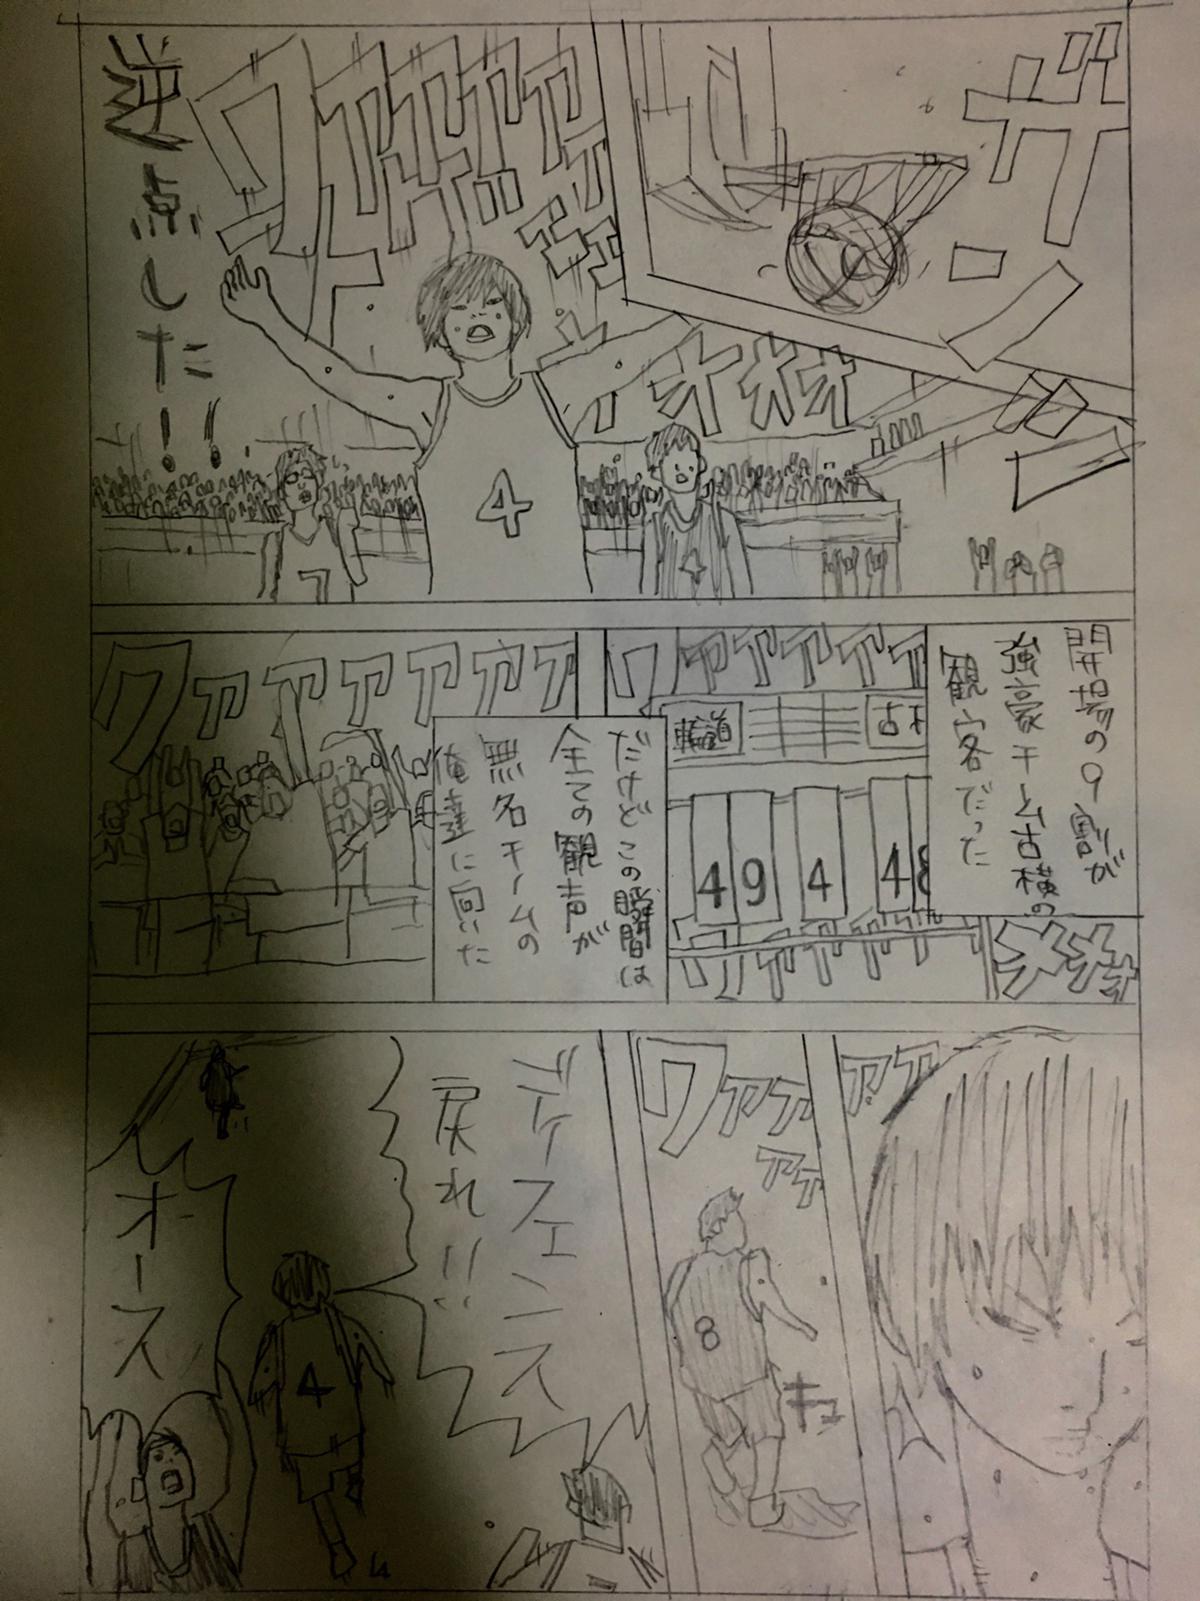 ザ
ワァァァァァ
逆点した!!
オオオ
4
7
4
開場の9割が
強豪チーム古横の
観客だった
ワァァァァァ
49
4
48
だけどこの瞬間は
全ての観声が
無名チームの
俺達に向いた
ワァァァァァァ
オオオ
ァァ
ワァァ
ァァ
8
キュ
ディフェンス
戻れ!!
4
オース